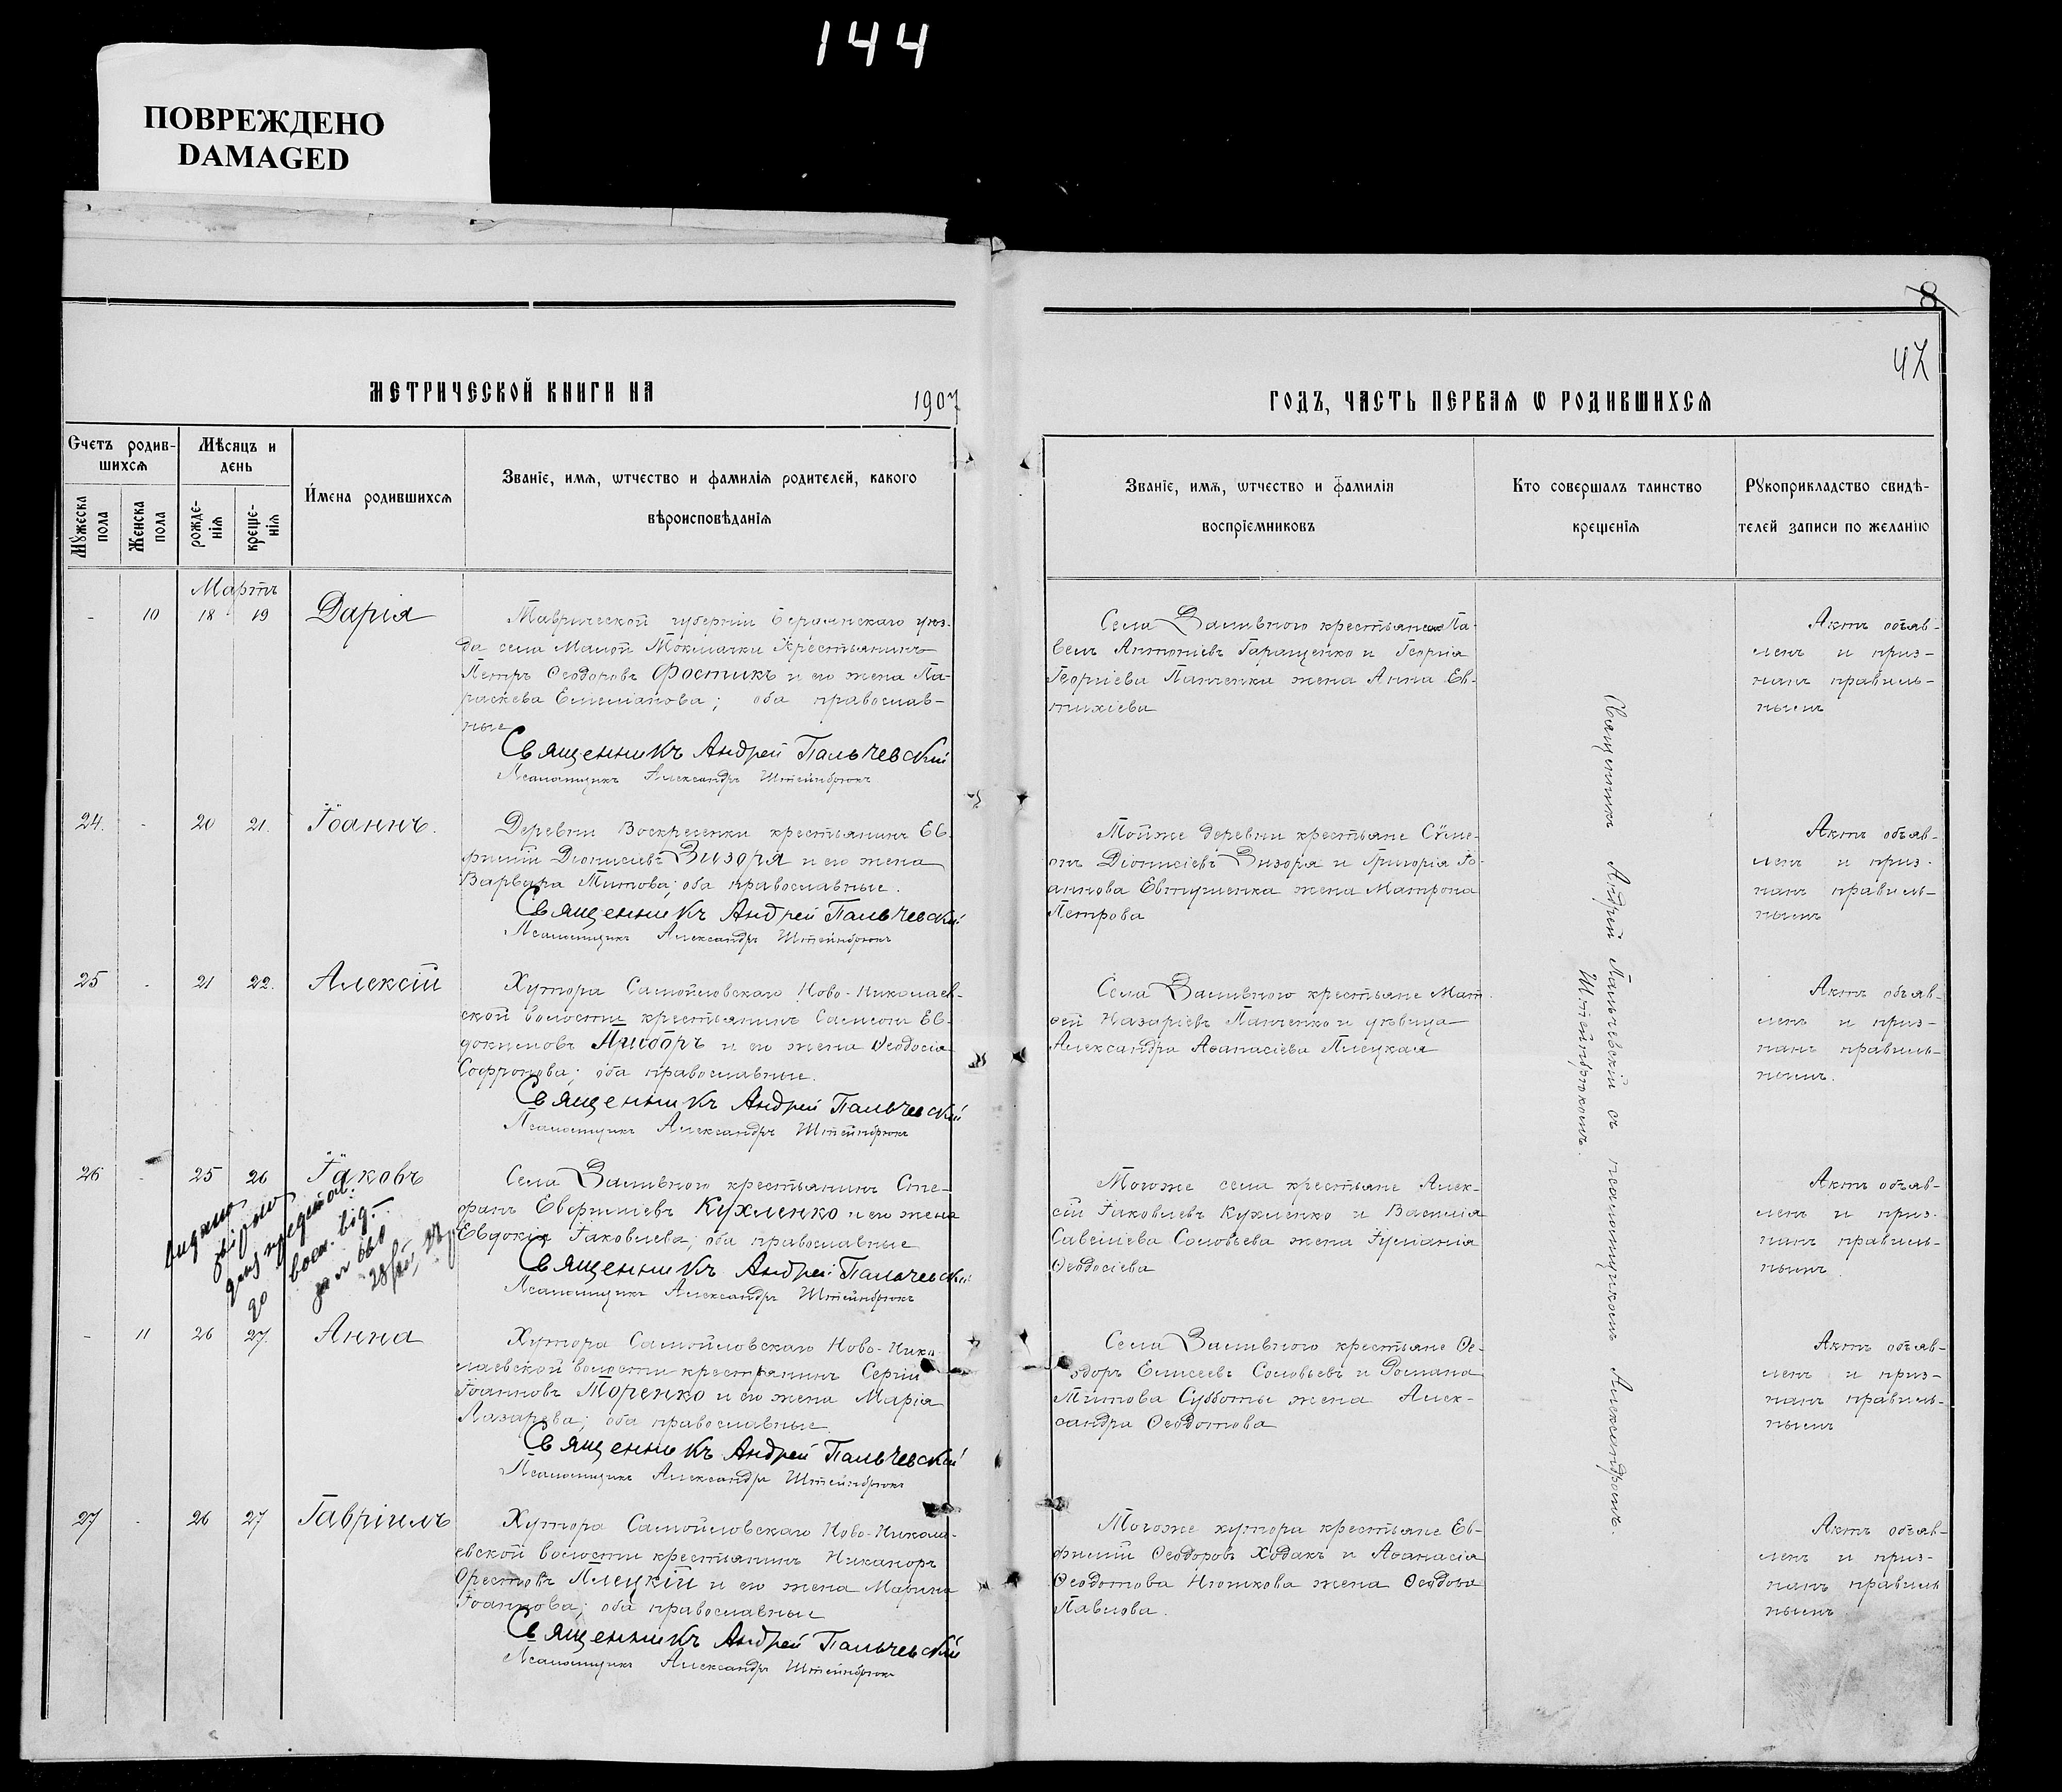 144
ПОВРЕЖДЕНО
DAMAGED
8
47
МЕТРИЧЕСКОЙ КНИГИ НА 1907
ГОДЪ, ЧАСТЬ ПЕРВАЯ Ѡ РОДИВШИХСЯ
Счетъ родив-
шихся
Мѣсяцъ и
день
Имена родившихся
Званіе, имя, ѡтчество и фамилія родителей, какого
вѣроисповѣданія
Мужеска
пола
Женска
пола
рожде-
нія
креще-
нія
Званіе, имя, ѡтчество и фамилія
воспріемниковъ
Кто совершалъ таинство
крещенія
Рукоприкладство свидѣ-
телей записи по желанію
Мартъ
- 10 18 19 Дарія
Таврической губерніи Бердянскаго уѣз-
да села Малой Токмачки крестьянинъ
Петръ Ѳеодоровъ Фостикъ и его жена Па-
раскева Емеліанова; оба православ-
ные
Священникъ Андрей Пальчевскій
Псаломщикъ Александръ Штейнбрюкъ
Села Заливного крестьяне Па-
велъ Антоніевъ Гаращенко и Георгія
Георгіева Панченка жена Анна Ев-
тихіева
Актъ объяв-
ленъ и приз-
нанъ правиль-
нымъ
24. - 20 21. Іоаннъ.
Деревни Воскресенки крестьянинъ Ев-
фимій Діонисіевъ Зизоря и его жена
Варвара Титова; оба православные.
Священникъ Андрей Пальчевскій
Псаломщикъ Александръ Штейнбрюкъ
Тойже деревни крестьяне Сѵме-
онъ Діонисіевъ Зизоря и Григорія Іо-
аннова Евтушенка жена Матрона
Петрова
Актъ объяв-
ленъ и приз-
нанъ правиль-
нымъ
25 - 21 22. Алексій
Хутора Самойловскаго Ново-Николаев-
ской волости крестьянинъ Самсонъ Ев-
докимовъ и его жена Ѳеодосія
Софронова; оба православные.
Священникъ Андрей Пальчевскій
Псаломщикъ Александръ Штейнбрюкъ
Села Заливного крестьяне Мат-
ѳей Назаріевъ Панченко и дѣвица
Александра Аѳанасіева Плецкая
Актъ объяв-
ленъ и приз-
нанъ правиль-
нымъ.
26 - 25 26 Іаковъ
Села Заливного крестьянинъ Сте-
фанъ Евфиміевъ Кухленко и его жена
Евдокія Іаковлева; оба православные
Священникъ Андрей Пальчевскій
Псаломщикъ Александръ Штейнбрюкъ
Тогоже села крестьяне Алек-
сій Іаковлевъ Кухленко и Василія
Савеліева Соловьева жена Іуліанія
Ѳеодосіева
Актъ объяв-
ленъ и приз-
нанъ правиль-
нымъ
- 11 26 27. Анна
Хутора Самойловскаго Ново-Нико-
лаевской волости крестьянинъ Сергій
Іоанновъ Торенко и его жена Марія
Лазарева; оба православные
Священникъ Андрей Пальчевскій
Псаломщикъ Александръ Штейнбрюкъ
Села Заливного крестьяне Ѳе-
одоръ Елисеевъ Соловьевъ и Романа
Титова Субботы жена Алек-
сандра Ѳеодотова
Актъ объяв-
ленъ и приз-
нанъ правиль-
нымъ
27 - 26 27 Гавріилъ
Хутора Самойловскаго Ново-Никола-
евской волости крестьянинъ Никаноръ
Орестовъ Плецкій и его жена Марина
Іоаннова; оба православные
Священникъ Андрей Пальчевскій
Псаломщикъ Александръ Штейнбрюкъ
Тогоже хутора крестьяне Ев-
фимій Ѳеодоровъ Ходакъ и Аѳанасія
Ѳеодотова жена Ѳеодора
Павлова.
Актъ объяв-
ленъ и приз-
нанъ правиль
нымъ
Священникъ Андрей Пальчевскій съ псаломщикомъ Александромъ
Штейнбрюкомъ.